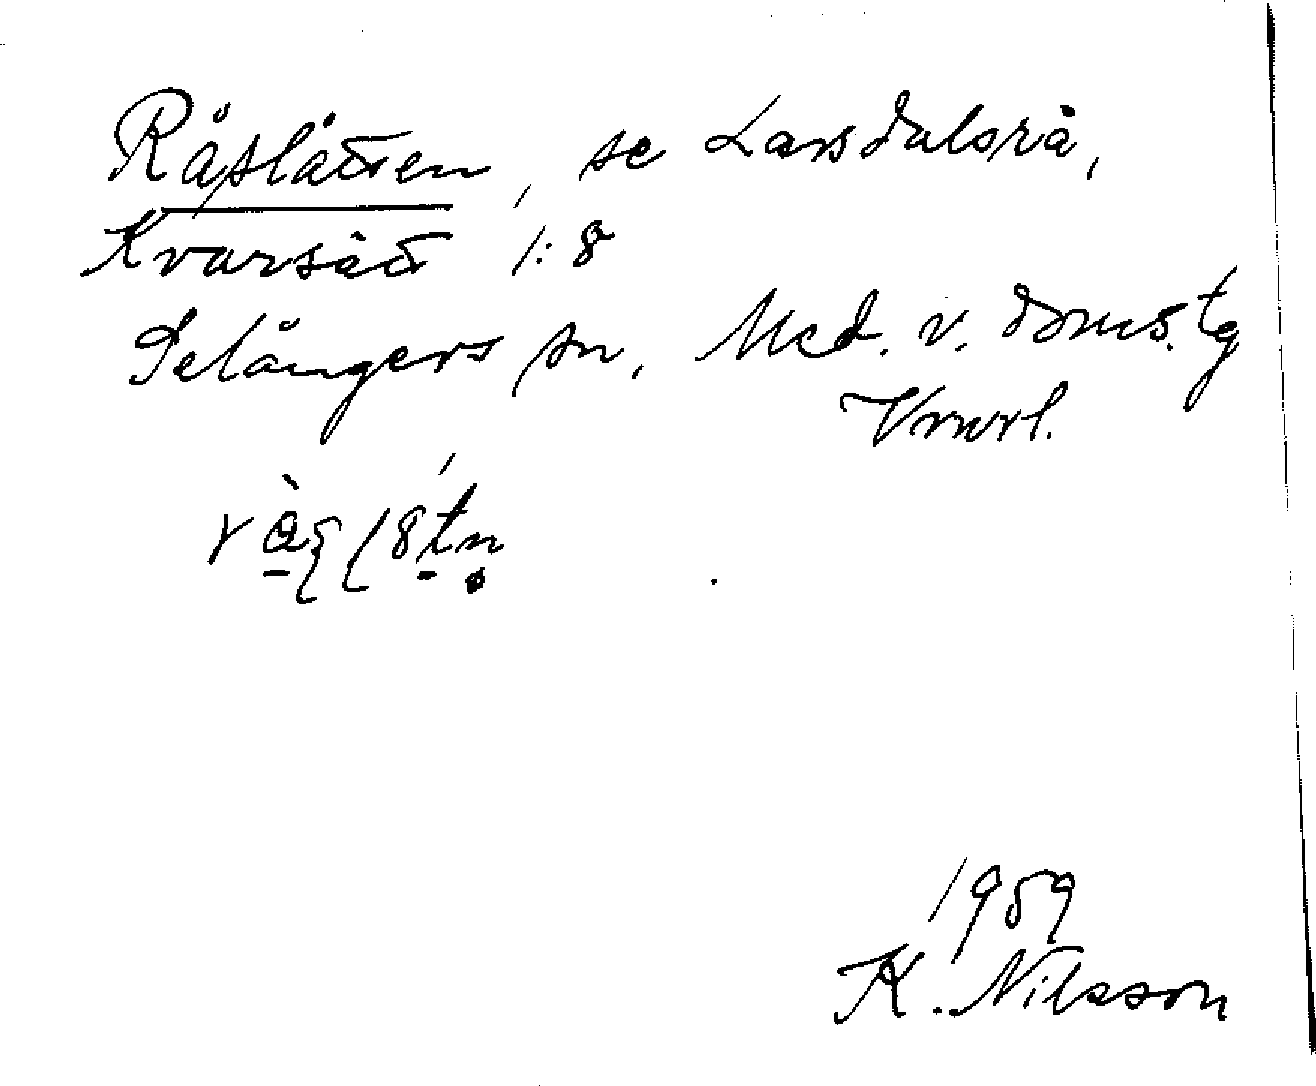 Råslåtten, se Larsdalsrå,
Kvarsätt 1:8
Selångers sn. Med. v. doms.tg
Vnorl.
1959
K. Nilsson